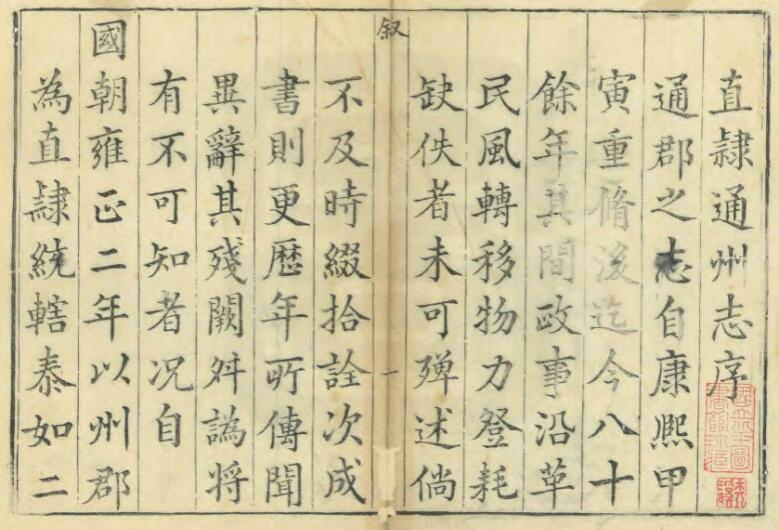 直隸通州志序
通郡之志自康熈甲
寅重脩後迄今八十
餘年其間政事沿革
民風轉移物力登耗
缺佚者未可殫述倘
叙
一
不及時綴拾詮次成
書則更歷年所傳聞
異辭其殘闕舛譌將
有不可知者况自
國朝雍正二年以州郡
為直隸統轄泰如二